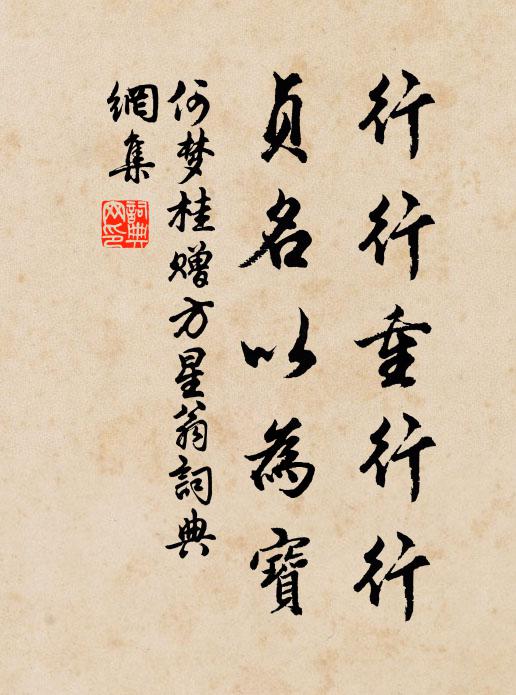 行行重行行
貞名以為寶
何梦桂赠方星翁詞典
網集
詞典
网印